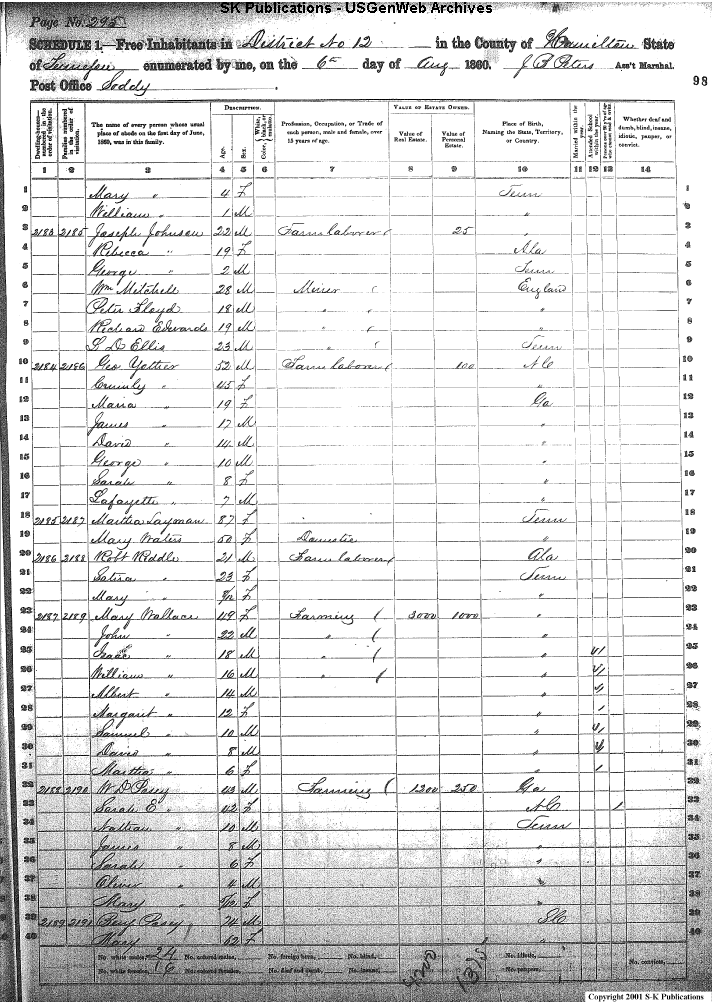 SK Publications - USGenWeb Archives
Page No. 295
SCHEDULE 1.—Free Inhabitants in District No 12 in the County of Hamilton State
of Tennessee enumerated by me, on the 6th day of Aug 1860. J B Peters Ass't Marshal.
Post Office Soddy
98
Dwelling-houses—numbered in the order of visitation. Families numbered in the order of visitation. The name of every person whose usual place of abode on the first day of June, 1860, was in this family. DESCRIPTION. Age. Sex. Color, White, black, or mulatto. Profession, Occupation, or Trade of each person, male and female, over 15 years of age. VALUE OF ESTATE OWNED. Value of Real Estate. Value of Personal Estate. Place of Birth, Naming the State, Territory, or Country. Married within the year. Attended School within the year. Whether deaf and dumb, blind, insane, idiotic, pauper, or convict.
1 2 3 4 5 6 7 8 9 10 11 12 13 14
1 Mary " 4 F Tenn 1
2 William " 1 M " 2
3 2183 2185 Joseph Johnson 22 M Farm laborer 25 " 3
4 Rebecca " 19 F Ala 4
5 George " 2 M Tenn 5
6 Wm Mitchell 28 M Miner England 6
7 Peter Floyd 18 M " " 7
8 Richard Edwards 19 M " " 8
9 Ellis 23 M " Tenn 9
10 2184 2186 Geo 52 M Farm laborer 100 N C 10
11 " 45 F " 11
12 Maria " 19 F Ga 12
13 James " 17 M " 13
14 David " 14 M " 14
15 George " 10 M " 15
16 Sarah " 8 F " 16
17 Lafayette " 7 M " 17
18 2185 2187 Martha Layman 87 F Tenn 18
19 Mary Waters 50 F Domestic " 19
20 2186 2188 Robt Riddle 21 M Farm laborer Ala 20
21 " 23 F Tenn 21
22 Mary " F " 22
23 2187 2189 Mary Wallace 49 F Farming 3000 1000 " 23
24 John " 22 M " " 24
25 Isaac " 18 M " " 25
26 William " 16 M " " 26
27 Albert " 14 M " 27
28 Margaret " 12 F " 1 28
29 Samuel " 10 M " 29
30 David " 8 M " 30
31 Martha " 6 F " 1 31
32 2188 2190 W D Posey 43 M Farming 1200 250 Ga 32
33 Sarah E " 42 F N C 1 33
34 Nathan " 10 M Tenn 34
35 James " 8 M " 35
36 Sarah " 6 F " 36
37 Oliver " 4 M " 37
38 Mary " F " 38
39 2189 2191 Benj Posey 74 M S C 39
40 Mary 52 F " 40
No. white males, 24 No. colored males, No. foreign born, No. blind, No. idiotic,
No. white females, 16 No. colored females, No. deaf and dumb, No. insane, 4200 1375 No. paupers, No. convicts,
Copyright 2001 S-K Publications